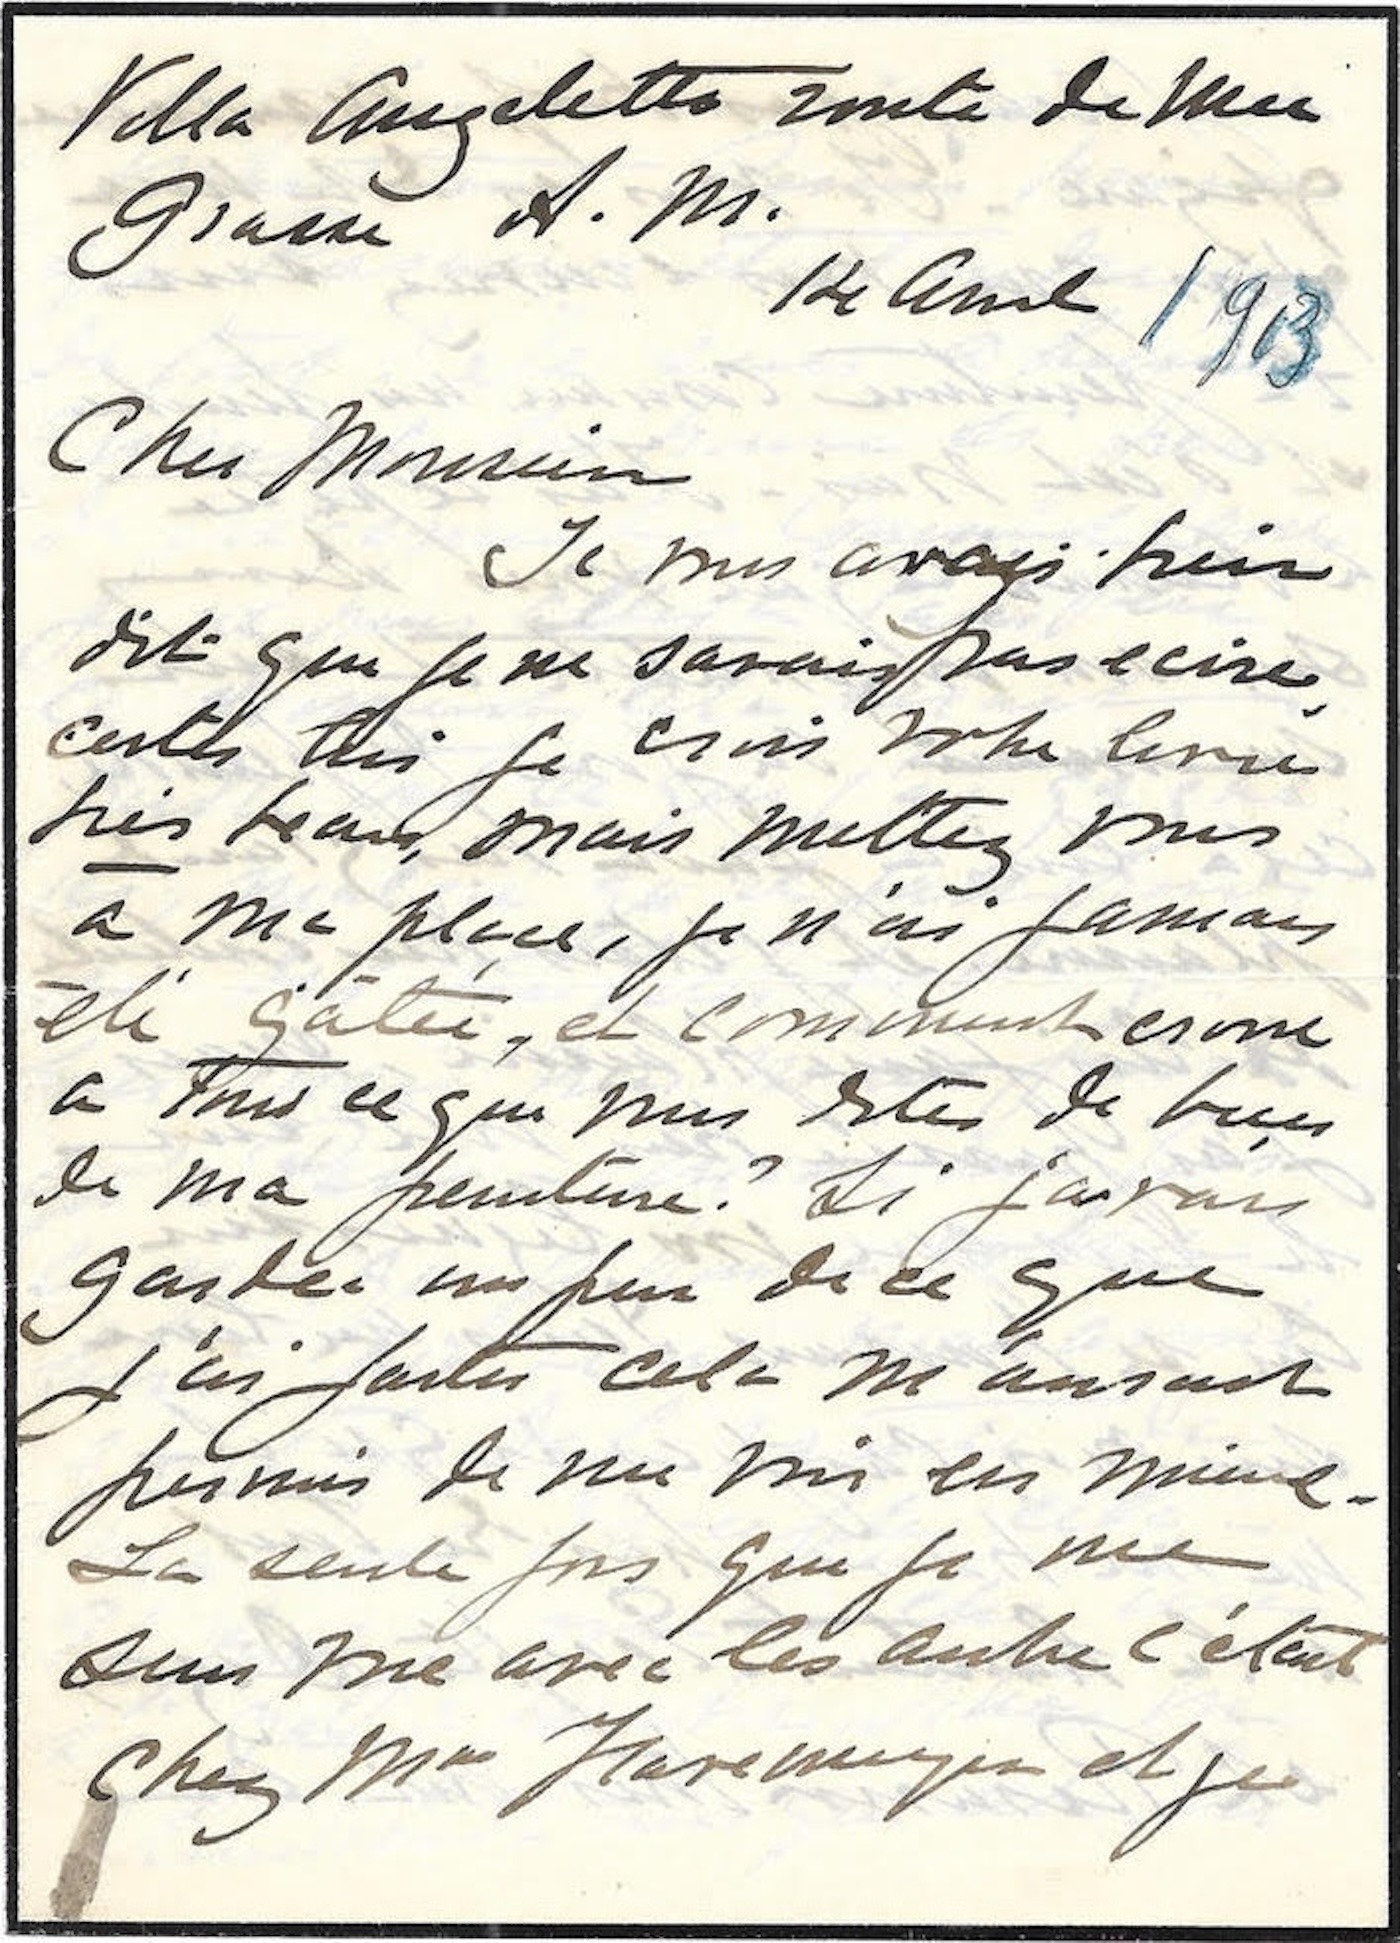 Villa Angeletto route de Nice
Grasse A. M.
Avril 1913
Cher Monsieur
Je vous avais bien
dit que je ne savais pas ecire,
certes bis je crois votre livre
très beau, mais mettez vous
à ma place, je n'ai jamais
été gâtée, et comment croire
a tous ce que vous dites de bien
de ma peinture? Si j'avais
garder un peu de ce que
j'ai faites cela m'aurait
permis de me voir en mieux -
La seule fois que je me
suis vue avec les autre c'était
chez Mme Havemeyer et je